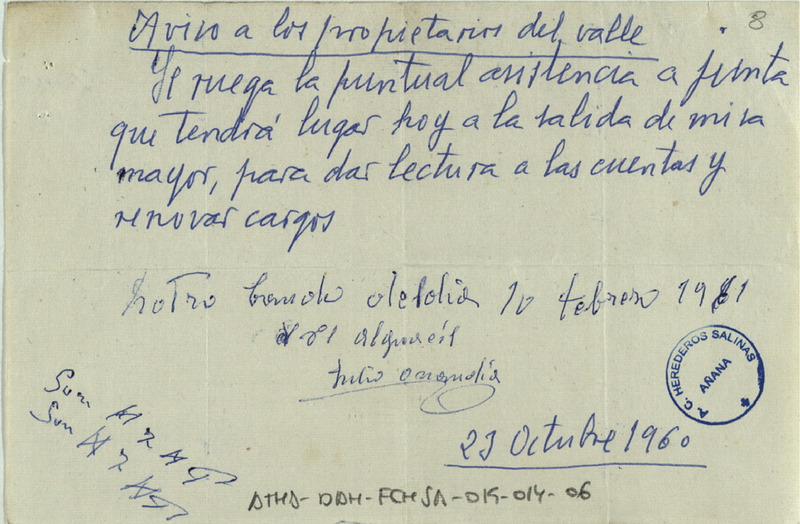 8
Aviso a los propietarios del valle
Se ruega la puntual asistencia a junta
que tendrá lugar hoy a la salida de misa
mayor, para dar lectura a las cuentas y
renovar cargos
hotro bando del dia 10 febrero 1961
el alguacil
Julio
A. C. HEREDEROS SALINAS
AÑANA
23 Octubre 1960
Son
Son
ATHA-DAH-FCHSA-019-014-06